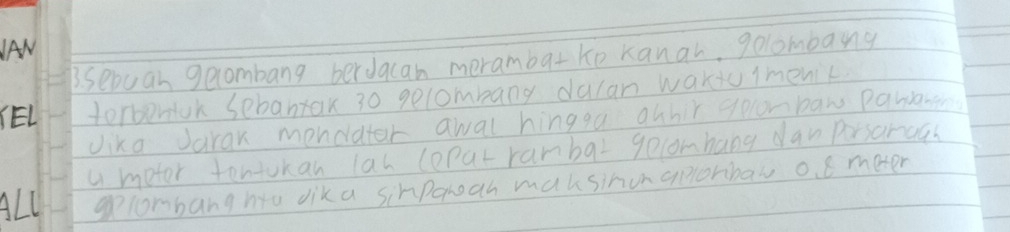 VAN
3.Sebuah gelombang berJacan merambat Ke Kanan. gelombang
TEL
terbentuk Sebantak 30 gelombang dalan waktu 1menit
Jika Jarak mendatar awal hingga akhir gelombaw
4 meter tentukan lah cepat rambat gelombang dan Persamaan
ALL
gelombang itu Jika simpangan maksimum 0,8 meter